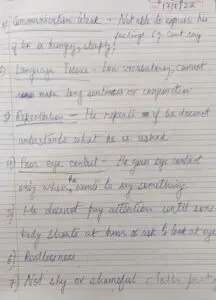 17/5/22
1) Communication Weak - Not able to express his
feelings Eg Cant say
if he is hungry, sleepy!
2) Language Issue - Low vocabulary, cannot
make long sentences or conjunction
3) Repeatation - He repeats if he doesnot
understands what he is asked
4) Poor eye contact - He gives eye contact
only when he wants to say something
5) He doesnot pay attention until some
body shouts at him or ask to look at eye
6) Restlessness
7) Not shy or shameful